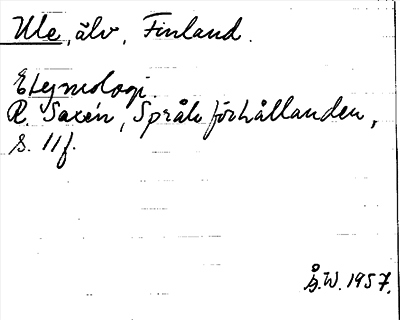 Ule, älv, Finland.
Etymologi.
R. Saxén, Språkförhållanden,
s. 11f.
Å.W. 1957.